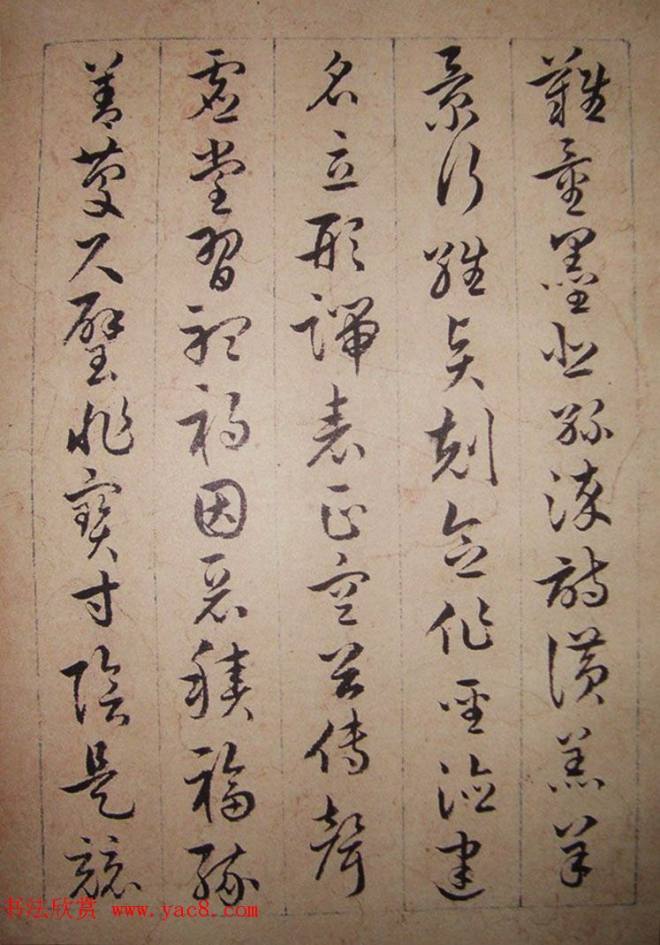 難量墨悲絲染詩讚羔羊
景行維賢剋念作聖德建
名立形端表正空谷傳聲
虛堂習聽禍因惡積福緣
善慶尺璧非寶寸陰是競
书法欣赏 www.yac8.com